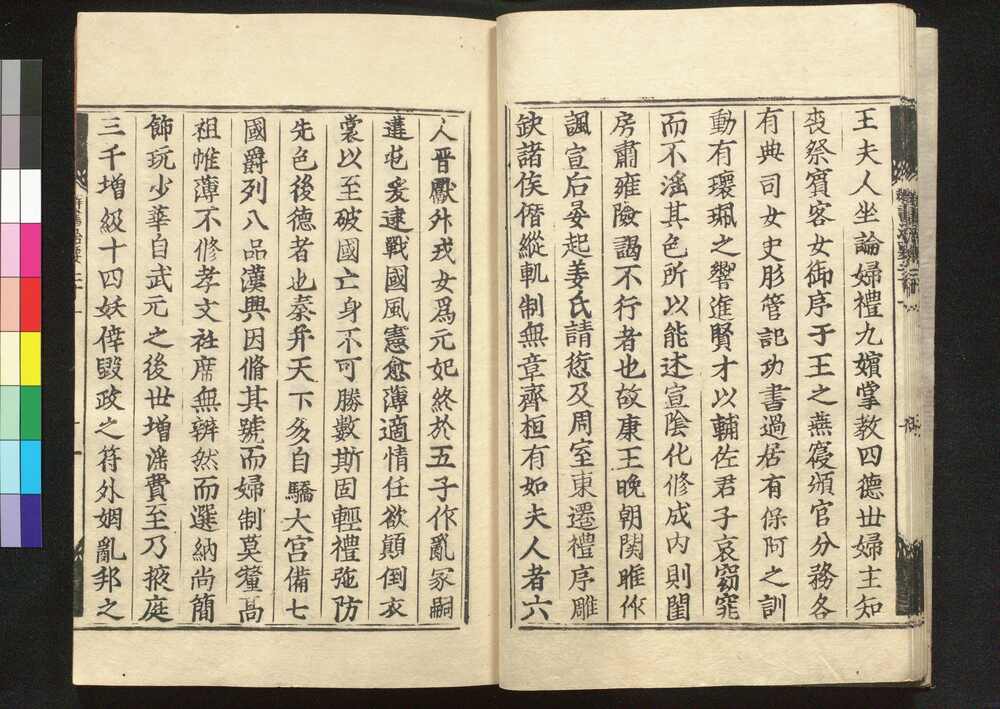 王夫人坐論婦禮九嬪掌教四德世婦主知
喪祭賓客女御序于王之燕寢頒官分務各
有典司女史彤管記功書過居有保阿之訓
動有環珮之響進賢才以輔佐君子哀窈窕
而不滛其色所以能述宣陰化修成內則閨
房肅雍險謁不行者也故康王晚朝関雎作
諷宣后晏起姜氏請愆及周室東遷禮序雕
缺諸侯僭縱軌制無章齊桓有如夫人者六
人晉獻升戎女爲元妃終於五子作亂冢嗣
遘屯爰逮戰國風憲愈薄適情任欲顛倒衣
裳以至破國亡身不可勝數斯固輕禮弛防
先色後德者也秦并天下多自驕大宮備七
國爵列八品漢興因脩其號而婦制莫釐高
祖帷薄不修孝文衽席無辨然而選納尚簡
飾玩少華自武元之後世增滛費至乃掖庭
三千增級十四妖倖毀政之符外姻亂邦之